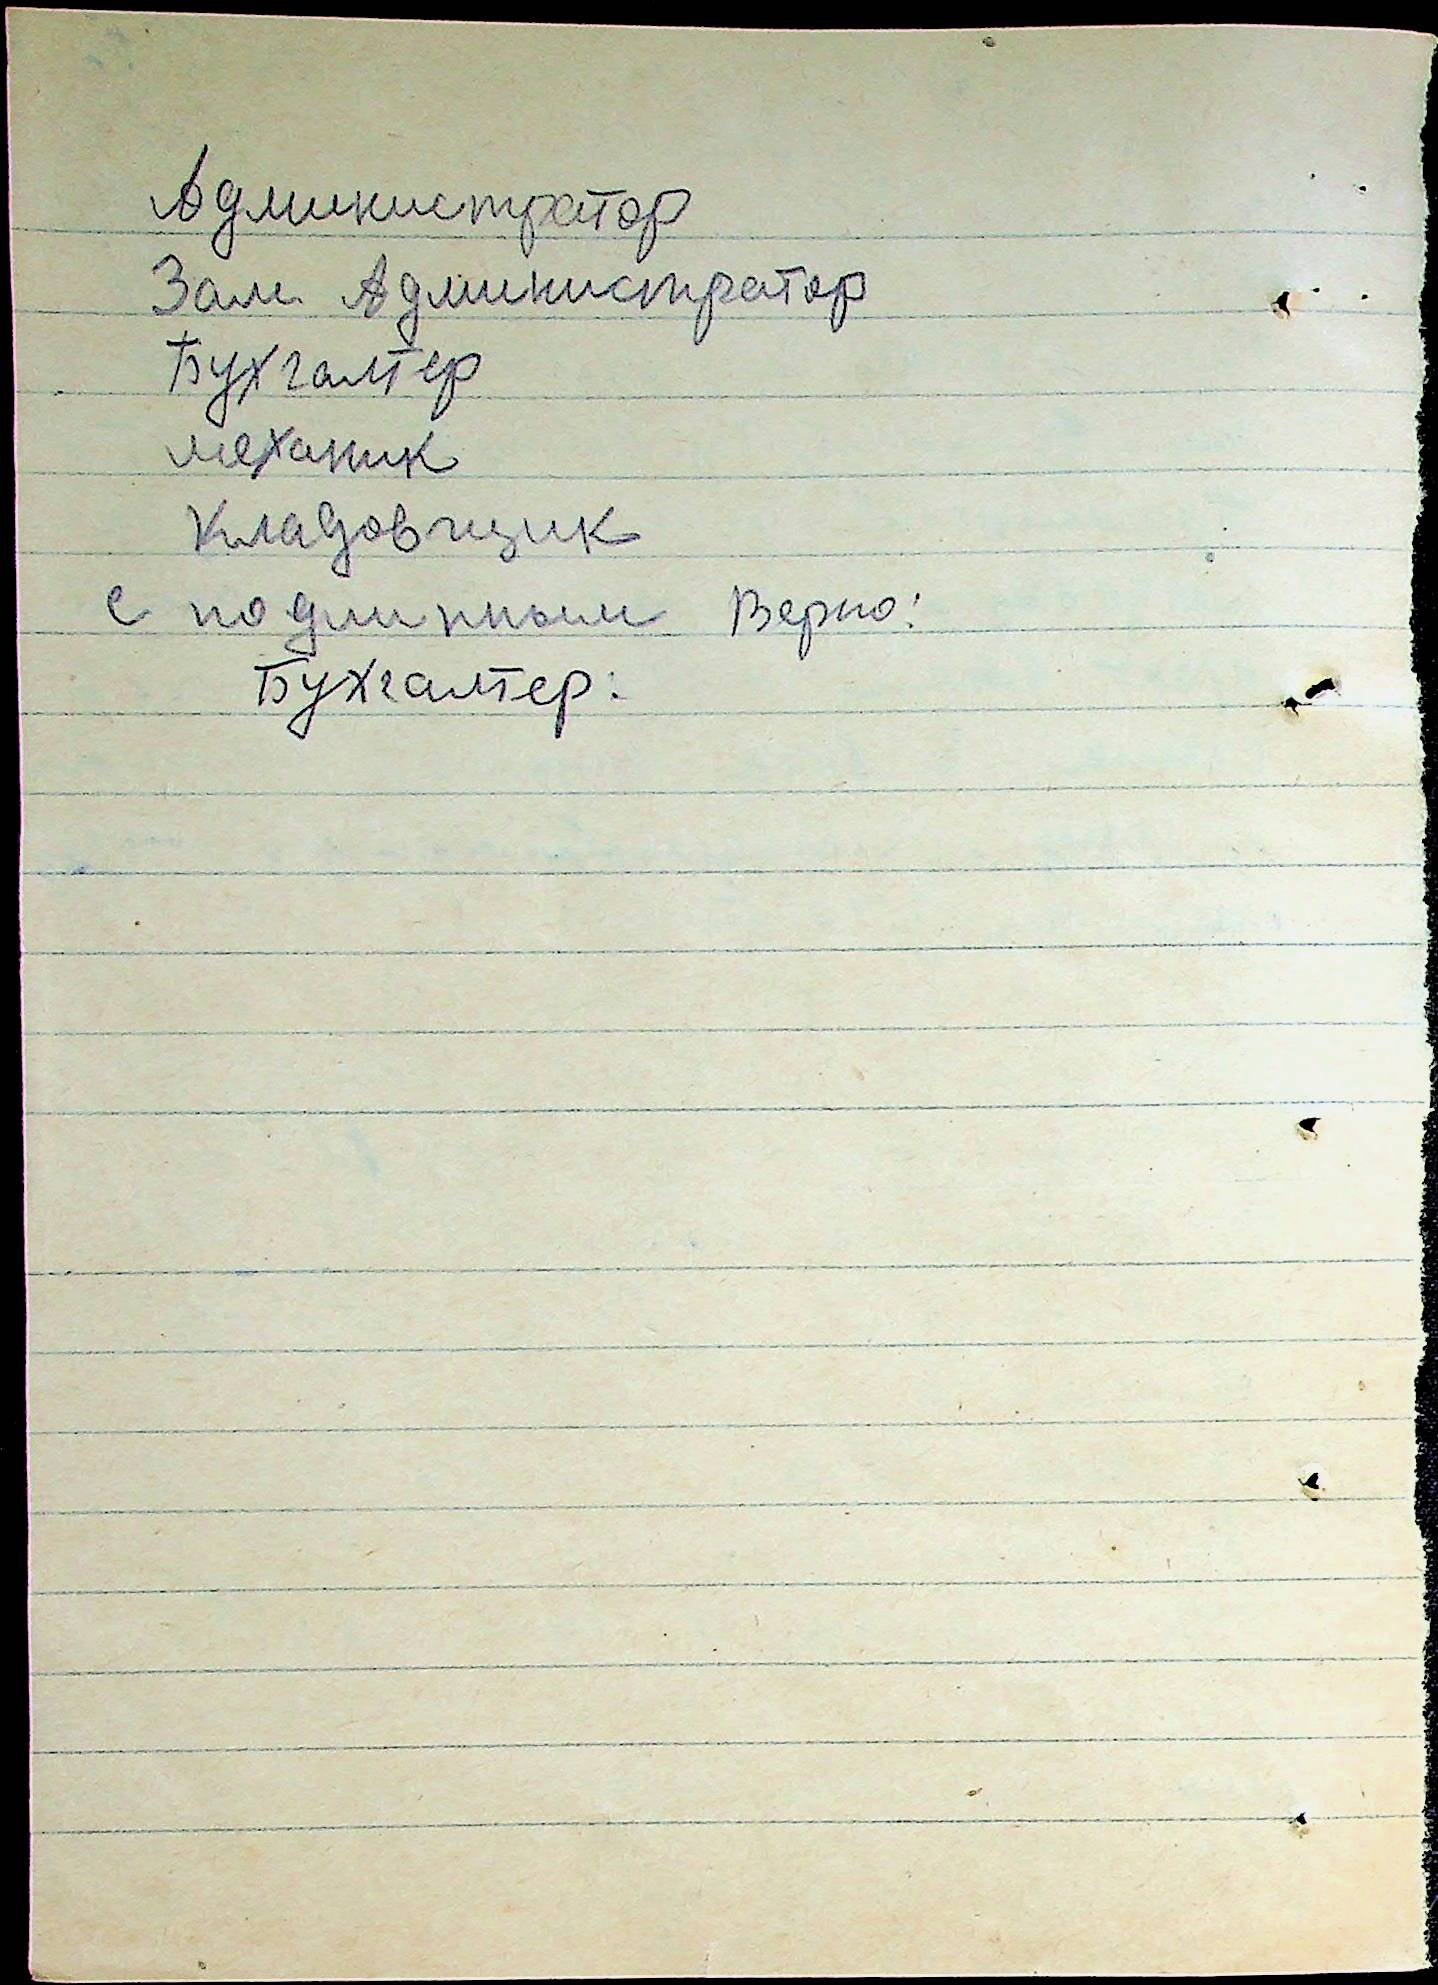 Администратор
Зам. Администратор
Бухгалтер
механик
Кладовщик
с подлинным Верно:
Бухгалтер: